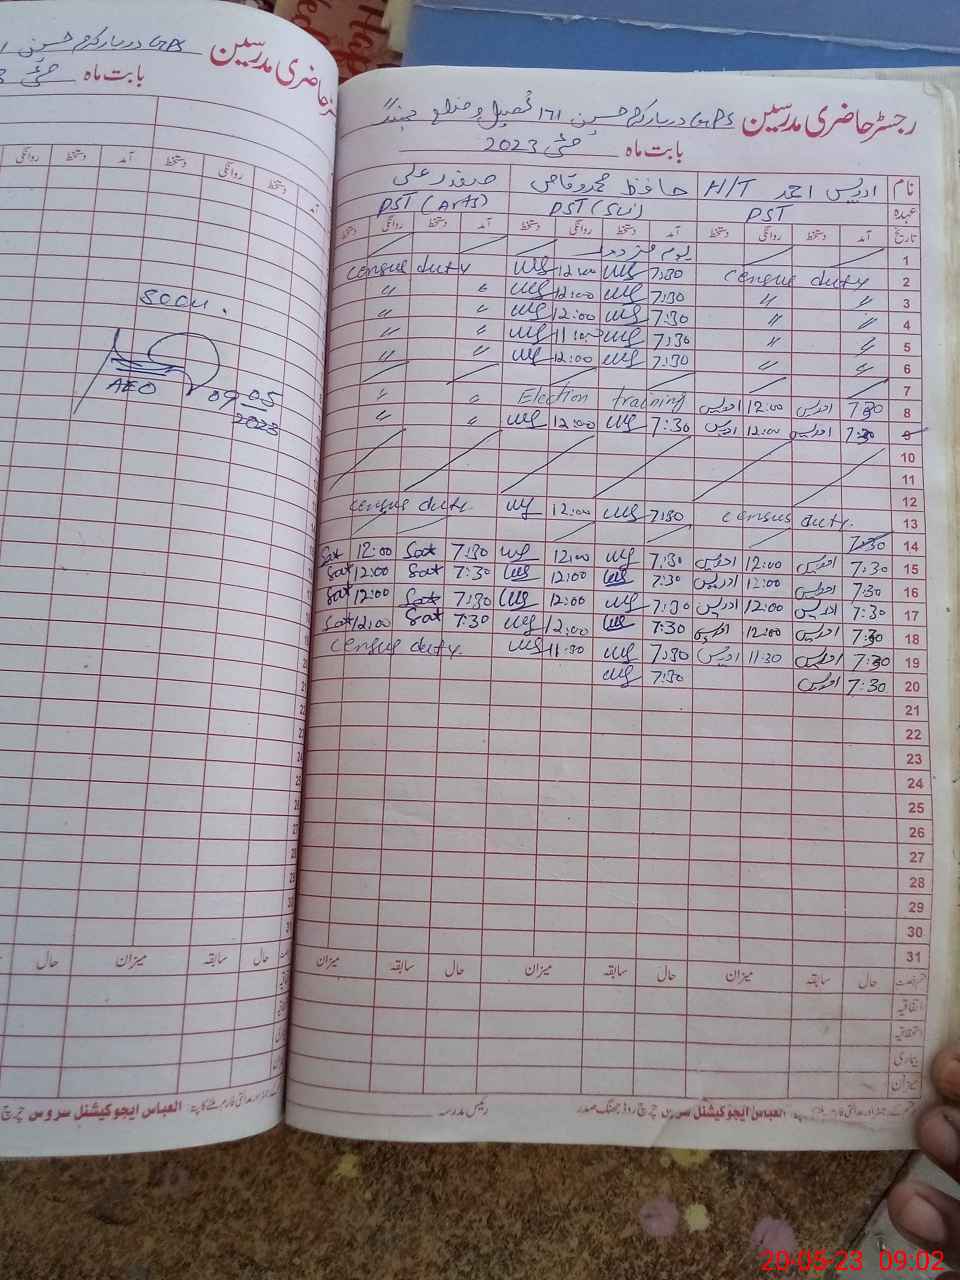 رجسٹر حاضری مدرسین GPS دربار کرم حسین 161 تحصیل و ضلع جھنگ
بابت ماہ مئی 2023
نام ادریس احمد H/T حافظ محمد وقاص صفدر علی
عہدہ PST PST (Sci) PST (Arts)
تاریخ آمد دستخط روانگی دستخط آمد دستخط روانگی دستخط آمد دستخط روانگی دستخط
1 یوم مزدور
2 census duty 7:30 12:00 census duty
3 〃 〃 7:30 12:00 〃 〃
4 〃 〃 7:30 12:00 〃 〃
5 〃 〃 7:30 11:00 〃 〃
6 〃 〃 7:30 12:00 〃 〃
7
8 7:30 ادریس 12:00 ادریس Election training 〃 〃
9 7:30 ادریس 12:00 ادریس 7:30 12:00 〃 〃
10
11
12
13 census duty. 7:30 12:00 census duty.
14 7:30
15 7:30 ادریس 12:00 ادریس 7:30 12:00 7:30 Sat 12:00 Sat
16 7:30 ادریس 12:00 ادریس 7:30 12:00 7:30 Sat 12:00 Sat
17 7:30 ادریس 12:00 ادریس 7:30 12:00 7:30 Sat 12:00 Sat
18 7:30 ادریس 12:00 ادریس 7:30 12:00 7:30 Sat 12:00 Sat
19 7:30 ادریس 11:30 ادریس 7:30 11:30 census duty.
20 7:30 ادریس 7:30
21
22
23
24
25
26
27
28
29
30
31
حال سابقہ میزان حال سابقہ میزان حال سابقہ میزان
اتفاقیہ
استحقاقیہ
بیماری
میزان
رئیس مدرسہ
العباس ایجوکیشنل سروس چرچ روڈ جھنگ صدر
رجسٹر حاضری مدرسین
GPS دربار کرم حسین
بابت ماہ مئی
آمد دستخط روانگی دستخط آمد دستخط روانگی
seen.
AEO 09-05
2023
حال سابقہ میزان حال
العباس ایجوکیشنل سروس چرچ
20-05-23 09:02